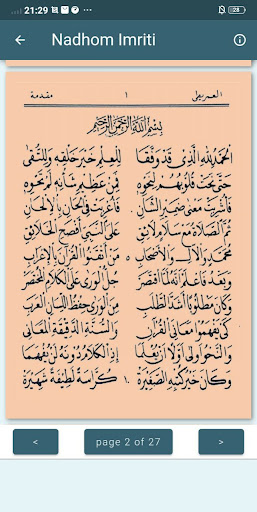 21:29
28
Nadhom Imriti
العمريطي ١ مقدمة
بسم الله الرحمن الرحيم
الحمد لله الذي قد وفقا للعلم خير خلقه وللتقى
حتى نحت قلوبهم لنحوه فمن عظيم شأنه لم تحوه
فأشربت معنى ضمير الشان فأعربت في الحان بالألحان
ثم الصلاة مع سلام لائق على النبي أفصح الخلائق
محمد والآل والأصحاب من أتقنوا القرآن بالإعراب
وبعد فاعلم أنه لما اقتصر جل الورى على الكلام المختصر
وكان مطلوبا أشد الطلب من الورى حفظ اللسان العربي
كي يفهموا معاني القرآن والسنة الدقيقة المعاني
والنحو أولى أولا أن يعلما إذ الكلام دونه لن يفهما
وكان خير كتبه الصغيره ١٠ كراسة لطيفة شهيره
< page 2 of 27 >